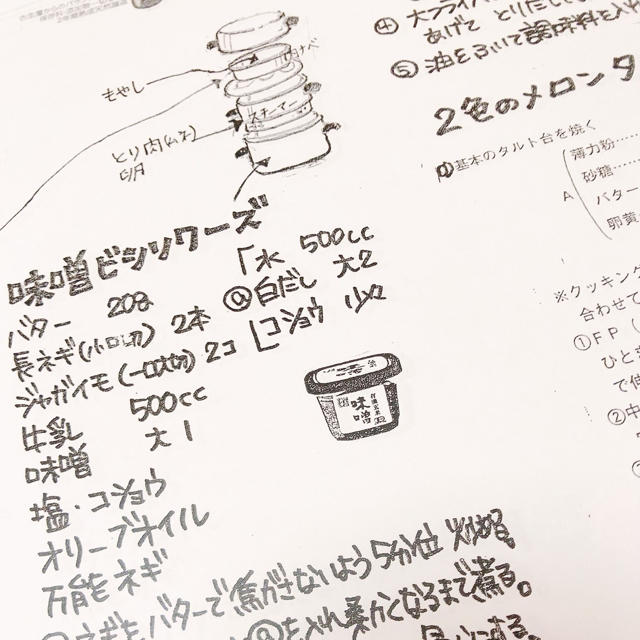 ④大フライパン
あげて とりだし
⑤油をふいて調味料を入れ
もやし
ナベ
スチーマー
とり肉(ムネ)
2色のメロンタ
①基本のタルト台を焼く
A
薄力粉……
砂糖……
バター
卵黄
味噌ビシソワーズ
バター 20g
長ネギ(小口切) 2本
ジャガイモ(一口大切) 2コ
牛乳 500cc
味噌 大1
塩・コショウ
オリーブオイル
万能ネギ
「水 500cc
@白だし 大2
コショウ 少々
味噌
※クッキング
合わせて
①FP(
ひとま
で使
②中
①ネギをバターで焦がさないよう5分位 炒める
@を入れ柔かくなるまで煮る。